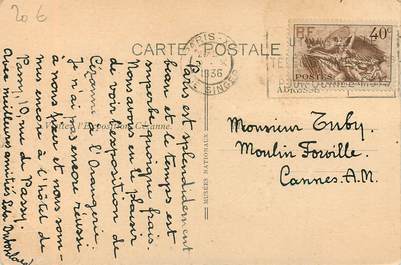 20 6
CARTE POSTALE
PARIS
1936
R. SINGER
RF
40c
POSTES
ADRESSE
Paris est splendidement
beau et le temps est
superbe quoique frais.
Nous avons eu le plaisir
de voir l'exposition de
Cézanne à l'Orangerie.
Je n'ai pas encore réussi
à nous fixer et nous som-
mes encore à l'hôtel de
Passy, 10, rue de Passy.
Avec meilleures amitiés
l'Exposition Cézanne.
MUSÉES NATIONAUX
Monsieur Tuby.
Moulin Forville.
Cannes. A.M.